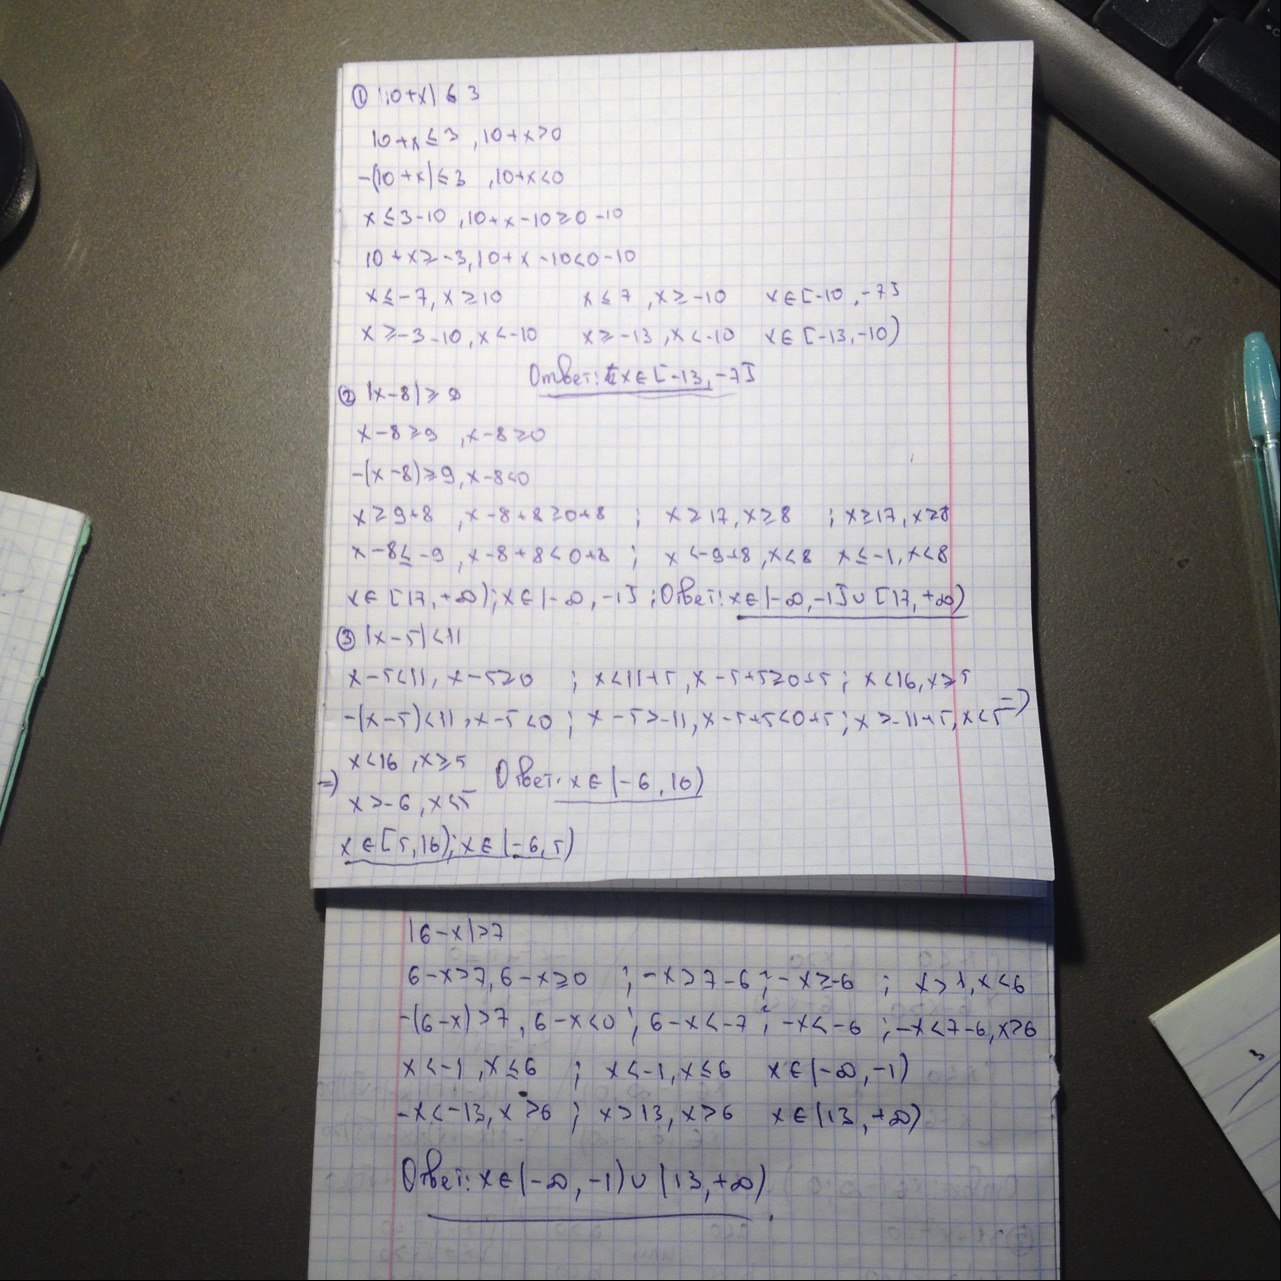 ① |10+x| ≤ 3
10+x ≤ 3 , 10+x>0
-(10+x) ≤ 3 , 10+x<0
x ≤ 3-10 , 10+x-10 ≥ 0-10
10+x ≥ -3, 10+x-10<0-10
x ≤ -7, x ≥ 10 x ≤ 7 , x ≥ -10 x ∈ [-10, -7]
x ≥ -3-10, x<-10 x ≥ -13, x<-10 x ∈ [-13, -10)
Ответ: x ∈ [-13, -7]
② |x-8| ≥ 9
x-8 ≥ 9 , x-8 ≥ 0
-(x-8) ≥ 9, x-8<0
x ≥ 9+8 , x-8+8 ≥ 0+8 ; x ≥ 17, x ≥ 8 ; x ≥ 17, x ≥ 8
x-8 ≤ -9 , x-8+8<0+8 ; x<-9+8, x<8 x ≤ -1, x<8
x ∈ [17, +∞); x ∈ (-∞, -1] ; Ответ: x ∈ (-∞, -1] ∪ [17, +∞)
③ |x-5|<11
x-5<11, x-5 ≥ 0 ; x<11+5, x-5+5 ≥ 0+5 ; x<16, x ≥ 5
-(x-5)<11, x-5<0 ; x-5>-11, x-5+5<0+5 ; x>-11+5, x<5 =>
=> x<16 , x ≥ 5
x>-6, x<5 Ответ: x ∈ (-6, 16)
x ∈ [5, 16); x ∈ (-6, 5)
|6-x|>7
6-x>7, 6-x ≥ 0 ; -x>7-6 ; -x ≥ -6 ; x>1, x<6
-(6-x)>7 , 6-x<0 ; 6-x<-7 ; -x<-6 ; -x<7-6, x>6
x<-1, x ≤ 6 ; x<-1, x ≤ 6 x ∈ (-∞, -1)
-x<-13, x>6 ; x>13, x>6 x ∈ (13, +∞)
Ответ: x ∈ (-∞, -1) ∪ (13, +∞)